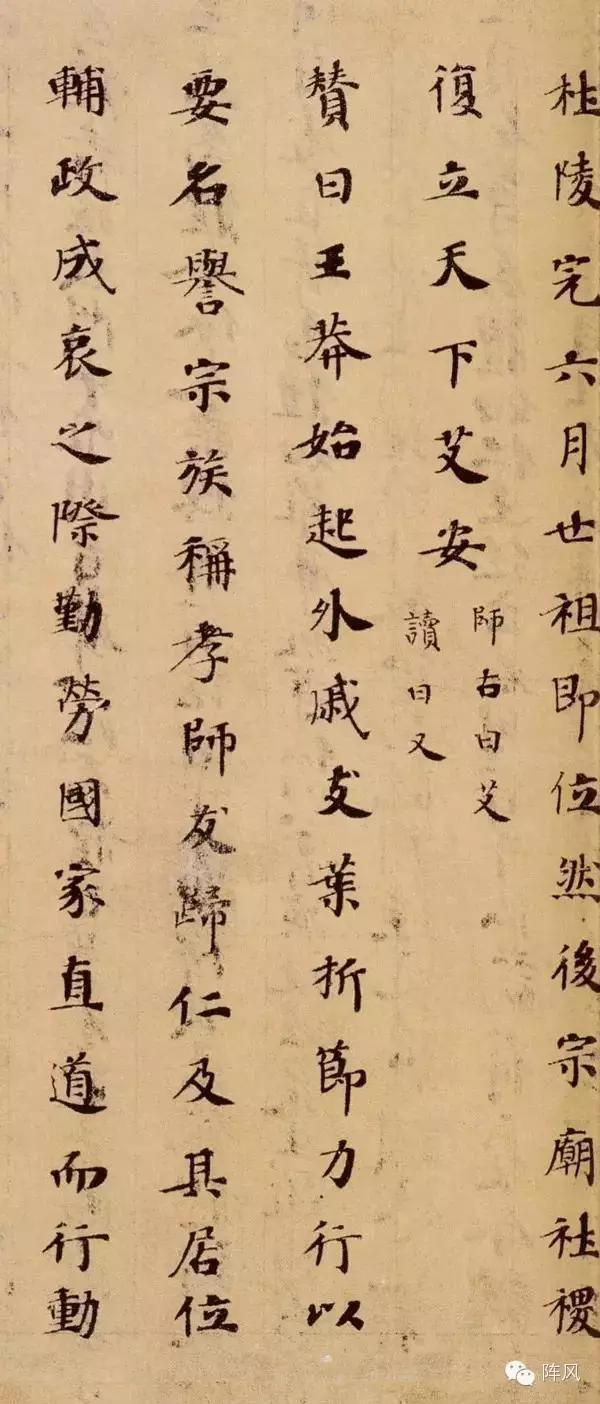 杜陵完六月世祖即位然後宗廟社稷
復立天下艾安
師古曰艾
讀曰乂
贊曰王莽始起外戚支葉折節力行以
要名譽宗族稱孝師友歸仁及其居位
輔政成哀之際勤勞國家直道而行動
阵风